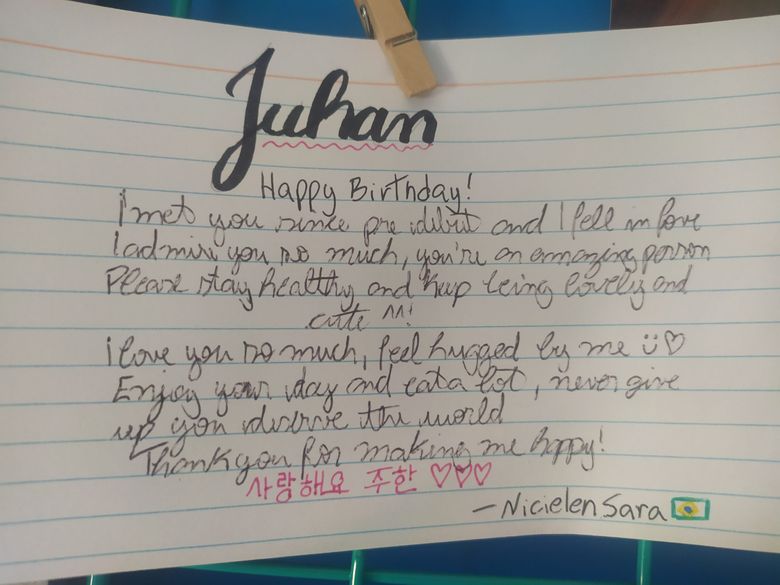 Juhan
Happy Birthday!
I met you since pre debut and I fell in love
I admire you so much, you're an ammazing person
Please stay healthy and keep being lovely and
cute ^^!
i love you so much, feel hugged by me ü♡
Enjoy your day and eat a lot, never give
up, you deserve the world
Thank you for making me happy!
사랑해요 주한 ♡♡♡
- Nicielen Sara